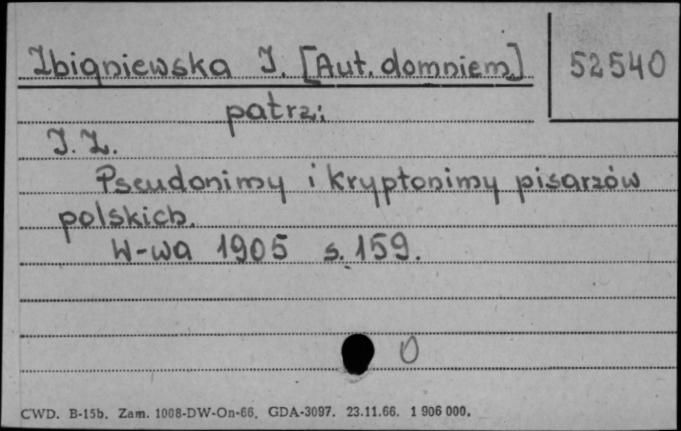 Zbigniewska J. [Aut. domniem.] 52540
patrz:
J. Z.
Pseudonimy i kryptonimy pisarzów
polskich.
W-wa 1905 s. 159.
0
CWD. B-15b. Zam. 1008-DW-On-66. GDA-3097. 23.11.66. 1 906 000.